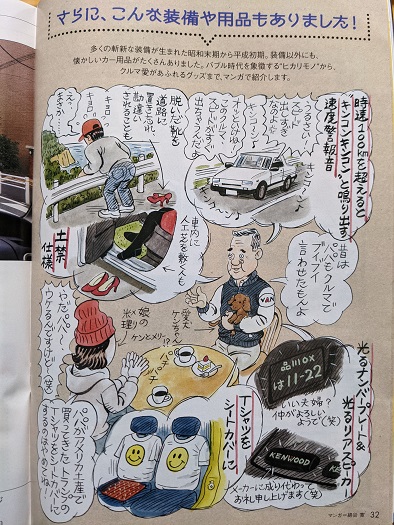 さらに、こんな装備や用品もありました！
多くの斬新な装備が生まれた昭和末期から平成初期。装備以外にも、
懐かしいカー用品がたくさんありました。バブル時代を象徴する"ヒカリモノ"から、
クルマ愛があふれるグッズまで、マンガで紹介します。
時速100kmを超えると
"キンコンキンコン"と鳴り出す
速度警報音
うるさーい!
キンコン♪
出しすぎ
なのよ
オッといけね!
このクルマ
スピードがすぐ
出ちゃうんだよ
脱いだ靴を
道路に
置き忘れ
勘違い
されることも
キョロ
キョロ
土禁
仕様
車内に
人工芝を敷く人も
昔は
パパもクルマで
ブイブイ
言わせたもんよ
VAN
愛犬
ケンちゃん
娘の
米理
ケンとメリー!?
やだパパ〜
ウケるんですけど〜(笑)
光るナンバープレート&
光るリアスピーカー
品川0X
は11-22
いい夫婦?
仲がよろしい
ようで(笑)
KENWOOD
メーカーに成り代わって
お礼申し上げます(笑)
Tシャツを
シートカバーに
パパがアメリカ土産で
買ってきたトランプの
Tシャツをシートカバーに
するのはやめてね!
マンガ=綿谷 寛
32